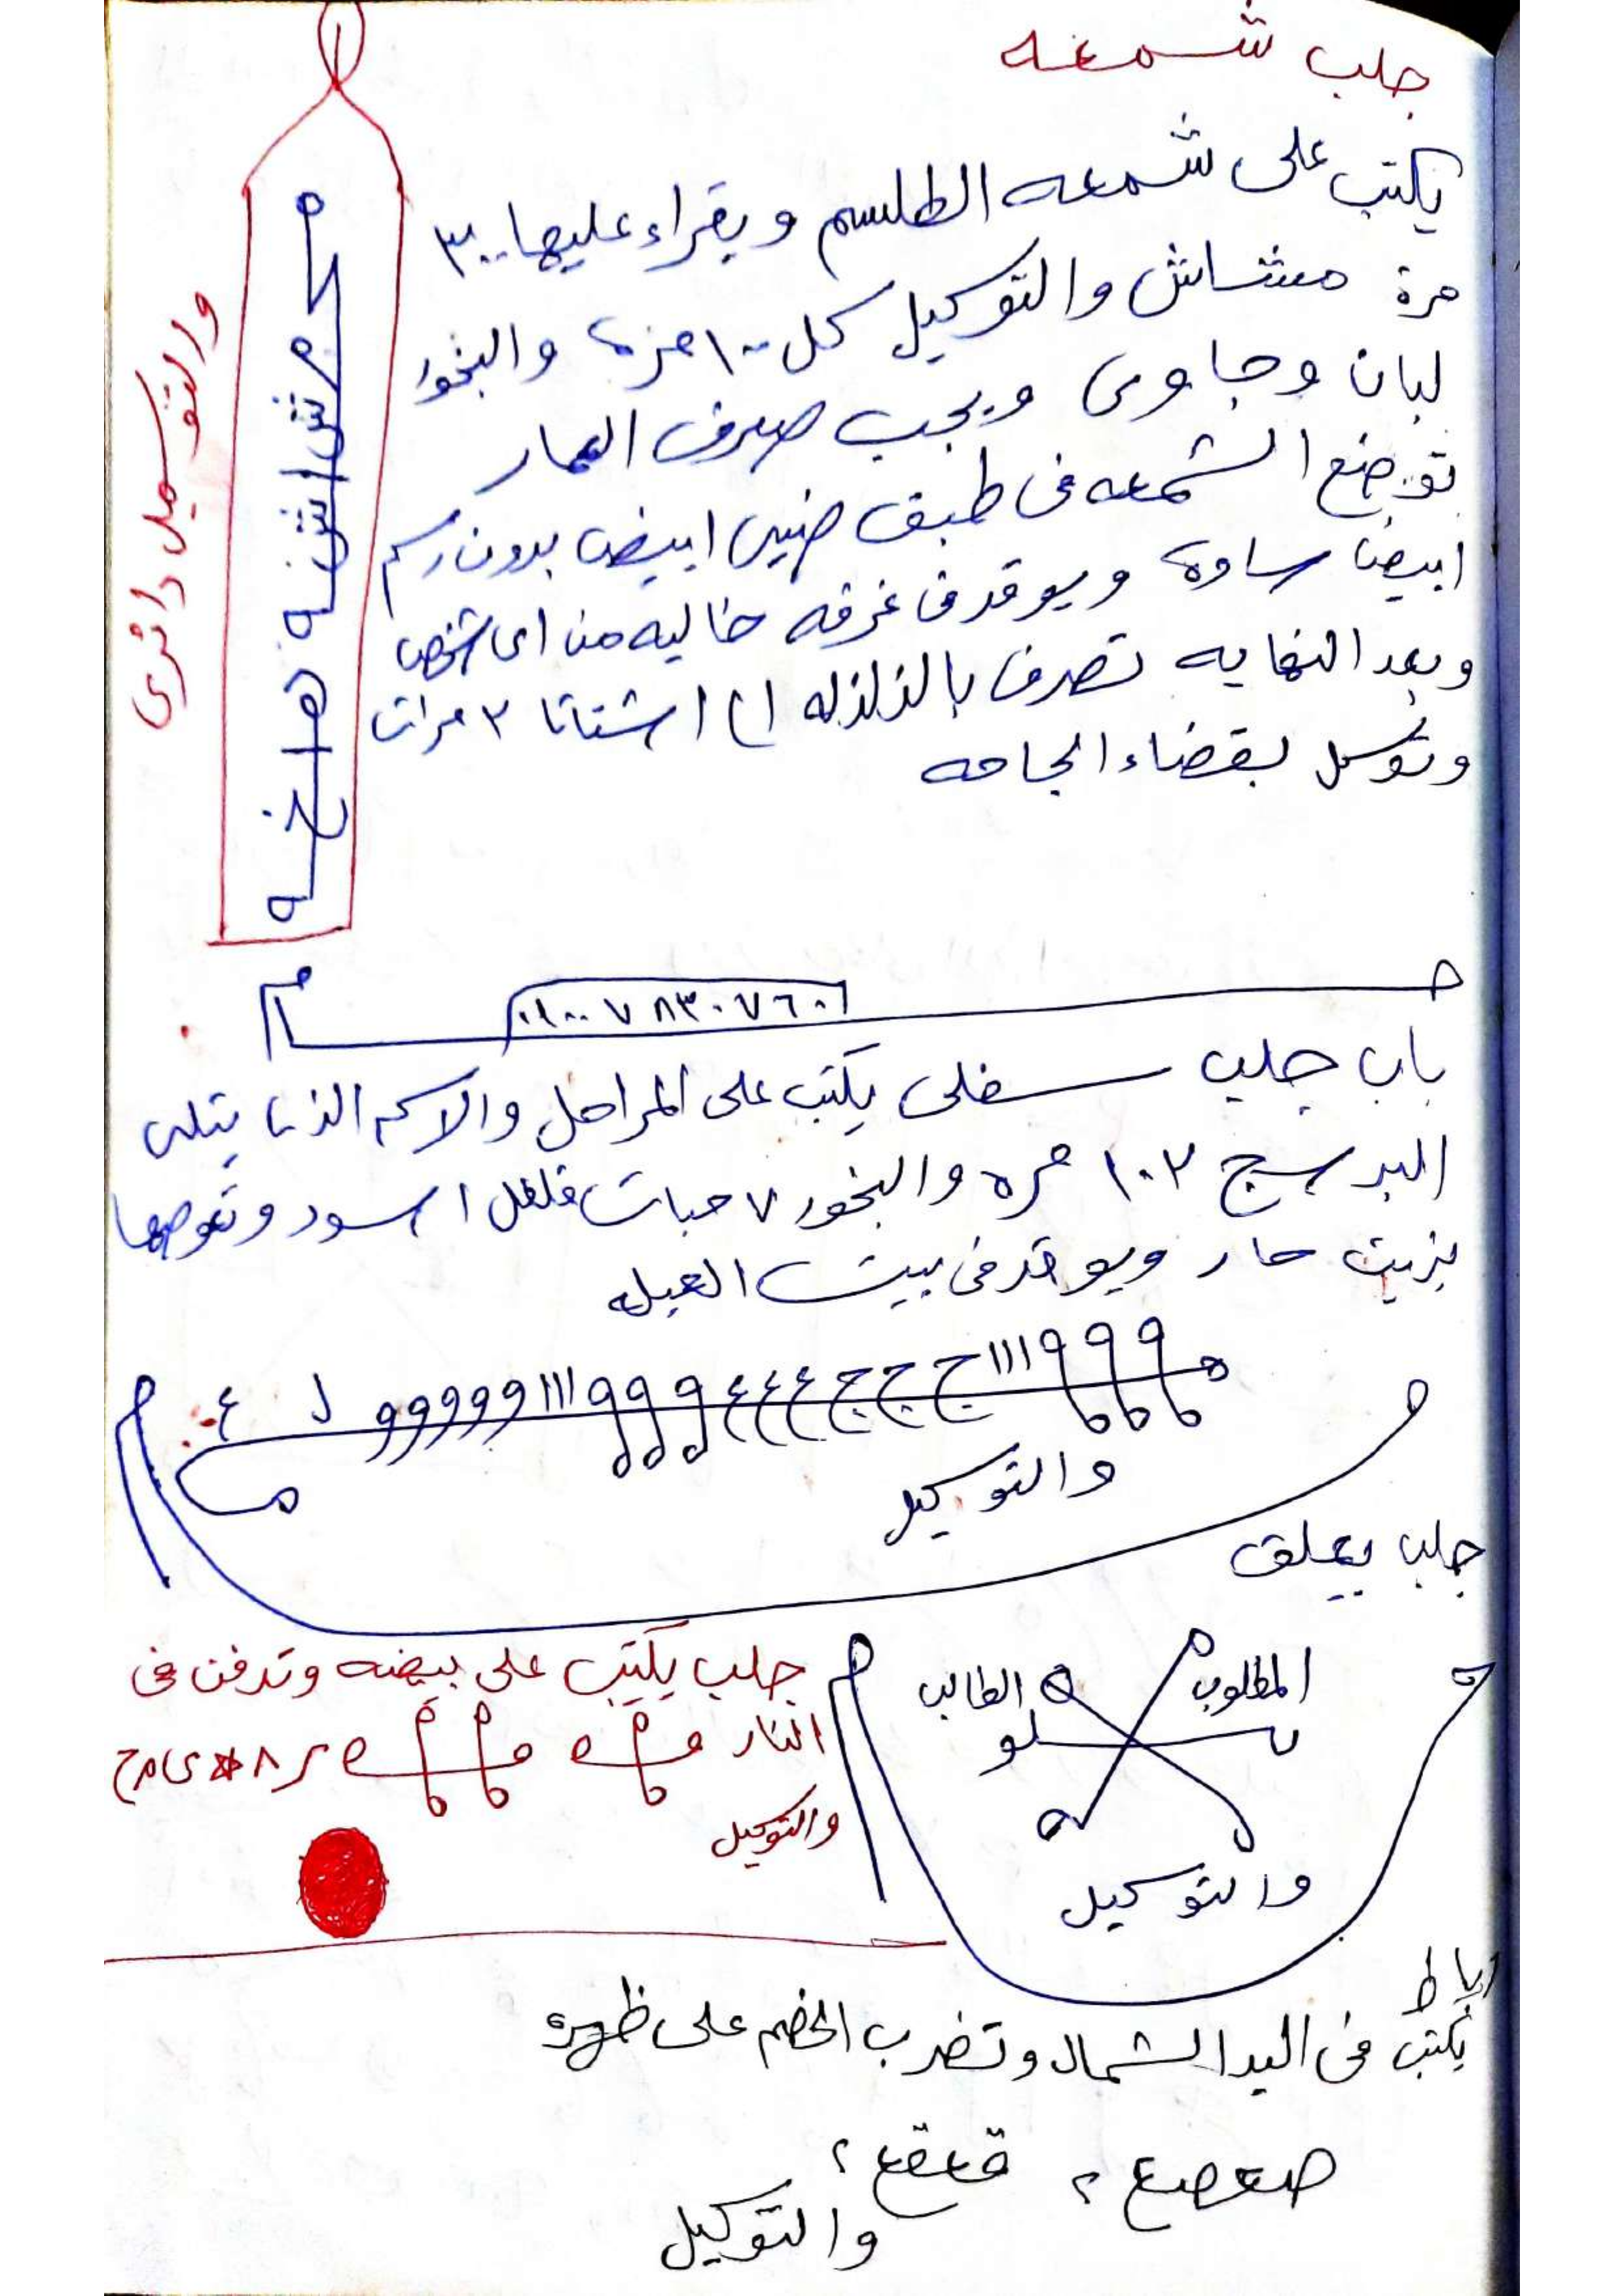 جلب شمعه
يكتب على شمعه الطلسم ويقراء عليها ٣٠٠
مرة مشاش والتوكيل كل ١٠٠ مره والبخور
لبان وجاوى ويجب صرف العمار
توضع الشمعه فى طبق صينى ابيض بدون رسم
ابيض سادة ويوقد فى غرفه خاليه من اى شخص
وبعد النهايه تصرف بالزلزله الى اشتاتا ٣ مرات
وتوسل بقضاء الحاجه
والتوكيل دائرى
٠١٠٠٧٨٣٠٧٦٠
باب جلب سفلى يكتب على المراحل والاسم الذى يتلى
البرسج ١٠٢ مره والبخور ٧ حبات فلفل اسود وتغوصها
بزيت حار ويوقد فى بيت
والتوكيل
جلب يعلق
المطلوب الطالب
والتوكيل
جلب يكتب على بيضه وتدفن فى
النار
والتوكيل
رباط
يكتب فى اليد الشمال وتضرب الخصم على ظهره
صعصع ٢ قعقع ٢
والتوكيل